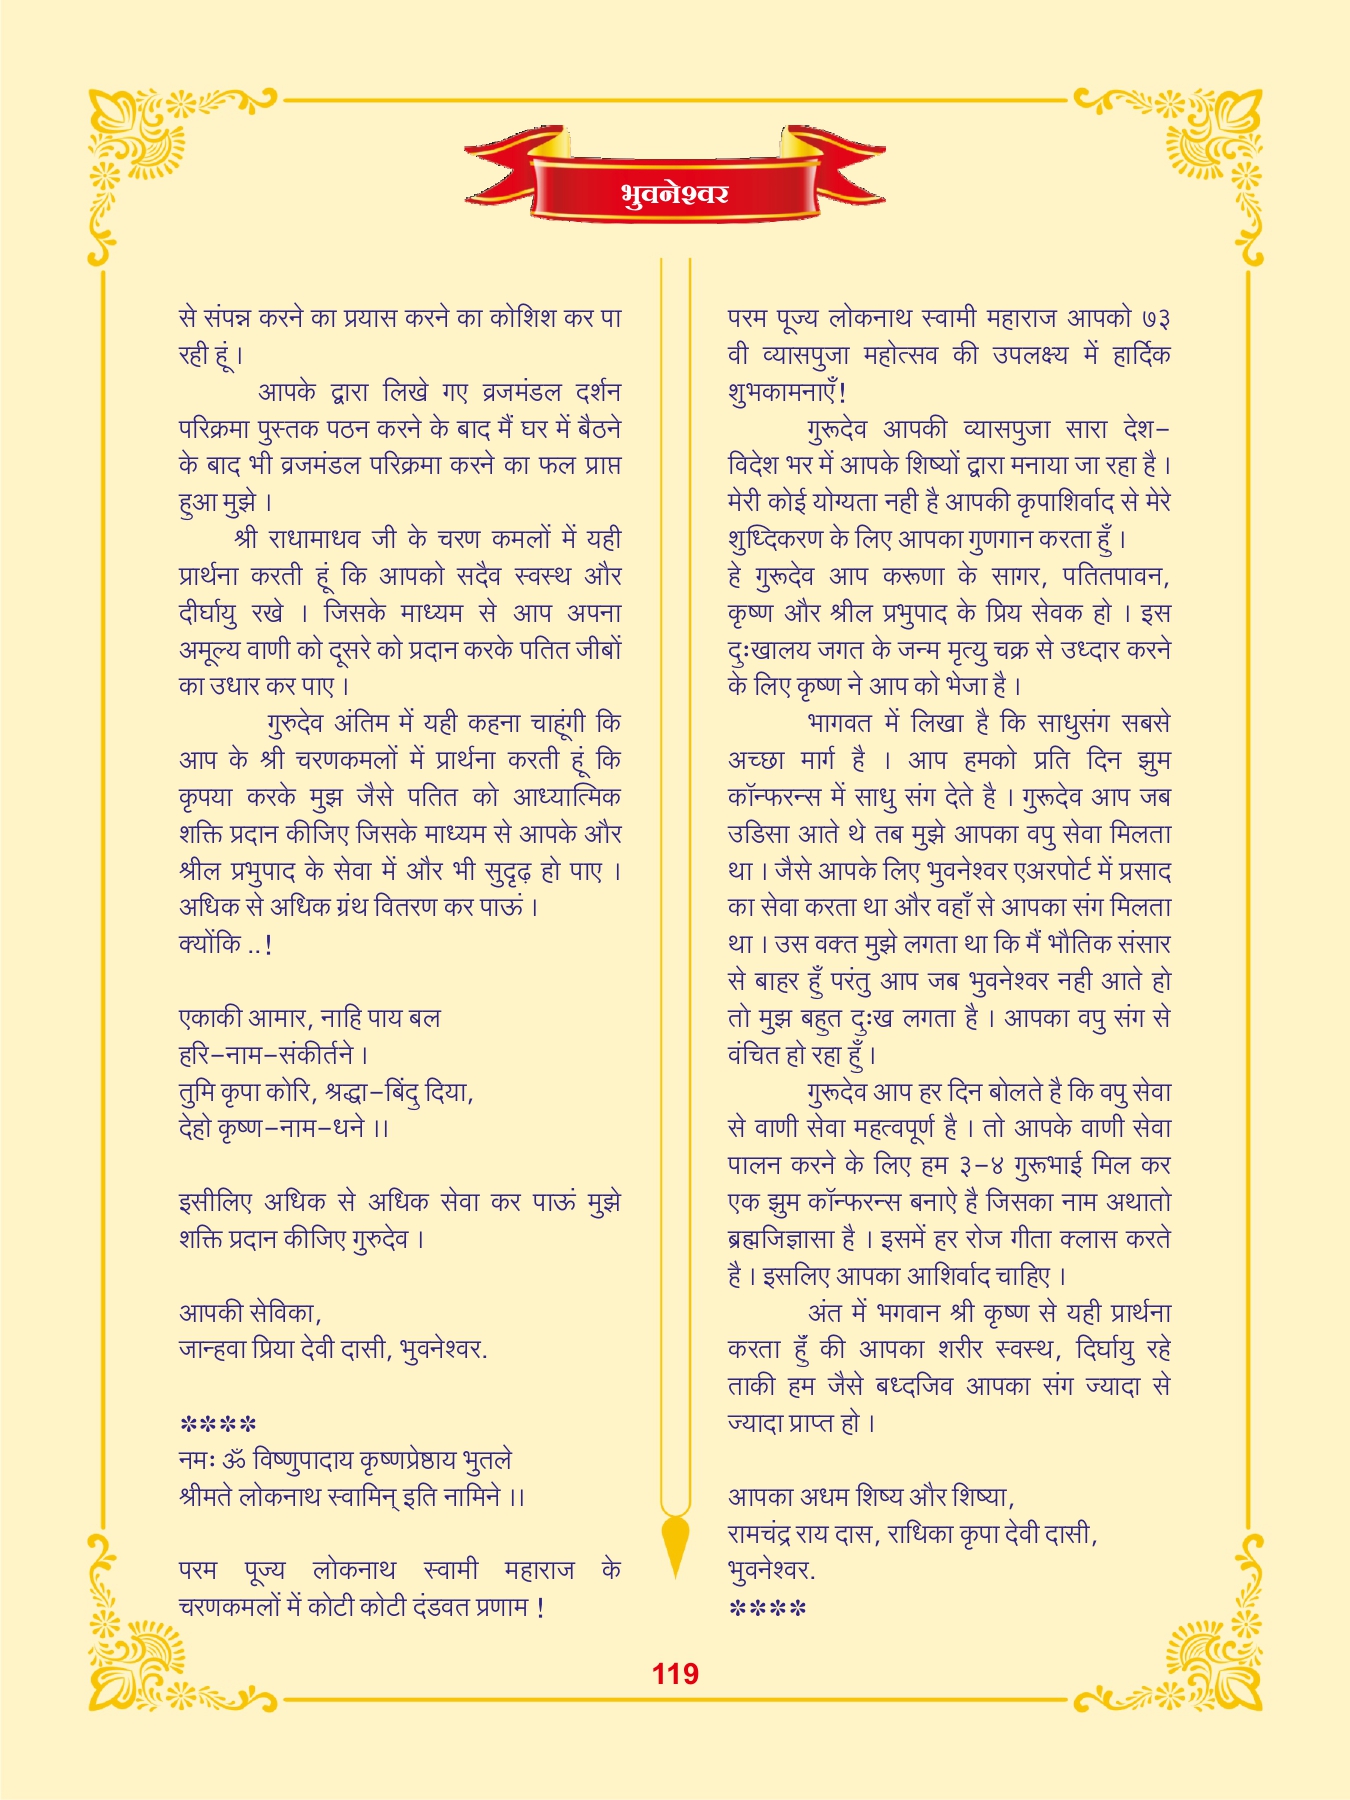 भुवनेश्वर
से संपन्न करने का प्रयास करने का कोशिश कर पा
रही हूं ।
आपके द्वारा लिखे गए व्रजमंडल दर्शन
परिक्रमा पुस्तक पठन करने के बाद मैं घर में बैठने
के बाद भी व्रजमंडल परिक्रमा करने का फल प्राप्त
हुआ मुझे ।
श्री राधामाधव जी के चरण कमलों में यही
प्रार्थना करती हूं कि आपको सदैव स्वस्थ और
दीर्घायु रखे । जिसके माध्यम से आप अपना
अमूल्य वाणी को दूसरे को प्रदान करके पतित जीबों
का उधार कर पाए ।
गुरुदेव अंतिम में यही कहना चाहूंगी कि
आप के श्री चरणकमलों में प्रार्थना करती हूं कि
कृपया करके मुझ जैसे पतित को आध्यात्मिक
शक्ति प्रदान कीजिए जिसके माध्यम से आपके और
श्रील प्रभुपाद के सेवा में और भी सुदृढ़ हो पाए ।
अधिक से अधिक ग्रंथ वितरण कर पाऊं ।
क्योंकि ..!
एकाकी आमार, नाहि पाय बल
हरि-नाम-संकीर्तने ।
तुमि कृपा कोरि, श्रद्धा-बिंदु दिया,
देहो कृष्ण-नाम-धने ।।
इसीलिए अधिक से अधिक सेवा कर पाऊं मुझे
शक्ति प्रदान कीजिए गुरुदेव ।
आपकी सेविका,
जान्हवा प्रिया देवी दासी, भुवनेश्वर.
****
नमः ॐ विष्णुपादाय कृष्णप्रेष्ठाय भुतले
श्रीमते लोकनाथ स्वामिन् इति नामिने ।।
परम पूज्य लोकनाथ स्वामी महाराज के
चरणकमलों में कोटी कोटी दंडवत प्रणाम !
परम पूज्य लोकनाथ स्वामी महाराज आपको ७३
वी व्यासपुजा महोत्सव की उपलक्ष्य में हार्दिक
शुभकामनाएँ!
गुरूदेव आपकी व्यासपुजा सारा देश-
विदेश भर में आपके शिष्यों द्वारा मनाया जा रहा है ।
मेरी कोई योग्यता नही है आपकी कृपाशिर्वाद से मेरे
शुध्दिकरण के लिए आपका गुणगान करता हुँ ।
हे गुरूदेव आप करूणा के सागर, पतितपावन,
कृष्ण और श्रील प्रभुपाद के प्रिय सेवक हो । इस
दुःखालय जगत के जन्म मृत्यु चक्र से उध्दार करने
के लिए कृष्ण ने आप को भेजा है ।
भागवत में लिखा है कि साधुसंग सबसे
अच्छा मार्ग है । आप हमको प्रति दिन झुम
कॉन्फरन्स में साधु संग देते है । गुरूदेव आप जब
उडिसा आते थे तब मुझे आपका वपु सेवा मिलता
था । जैसे आपके लिए भुवनेश्वर एअरपोर्ट में प्रसाद
का सेवा करता था और वहाँ से आपका संग मिलता
था । उस वक्त मुझे लगता था कि मैं भौतिक संसार
से बाहर हुँ परंतु आप जब भुवनेश्वर नही आते हो
तो मुझ बहुत दुःख लगता है । आपका वपु संग से
वंचित हो रहा हुँ ।
गुरूदेव आप हर दिन बोलते है कि वपु सेवा
से वाणी सेवा महत्वपूर्ण है । तो आपके वाणी सेवा
पालन करने के लिए हम ३-४ गुरूभाई मिल कर
एक झुम कॉन्फरन्स बनाऐ है जिसका नाम अथातो
ब्रह्मजिज्ञासा है । इसमें हर रोज गीता क्लास करते
है । इसलिए आपका आशिर्वाद चाहिए ।
अंत में भगवान श्री कृष्ण से यही प्रार्थना
करता हुँ की आपका शरीर स्वस्थ, दिर्घायु रहे
ताकी हम जैसे बध्दजिव आपका संग ज्यादा से
ज्यादा प्राप्त हो ।
आपका अधम शिष्य और शिष्या,
रामचंद्र राय दास, राधिका कृपा देवी दासी,
भुवनेश्वर.
****
119